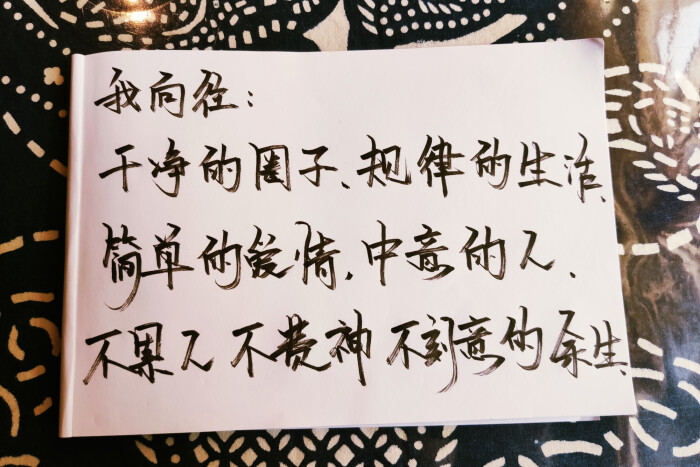 我向径:
干净的圈子、规律的生活、
简单的爱情,中意的人、
不累人 不费神 不刻意的余生、